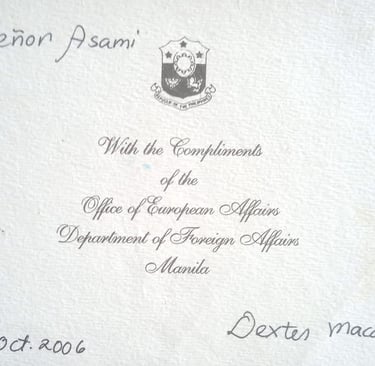 eñor Asami
REPUBLIC OF THE PHILIPPINES
With the Compliments
of the
Office of European Affairs
Department of Foreign Affairs
Manila
Oct. 2006
Dexter Maca